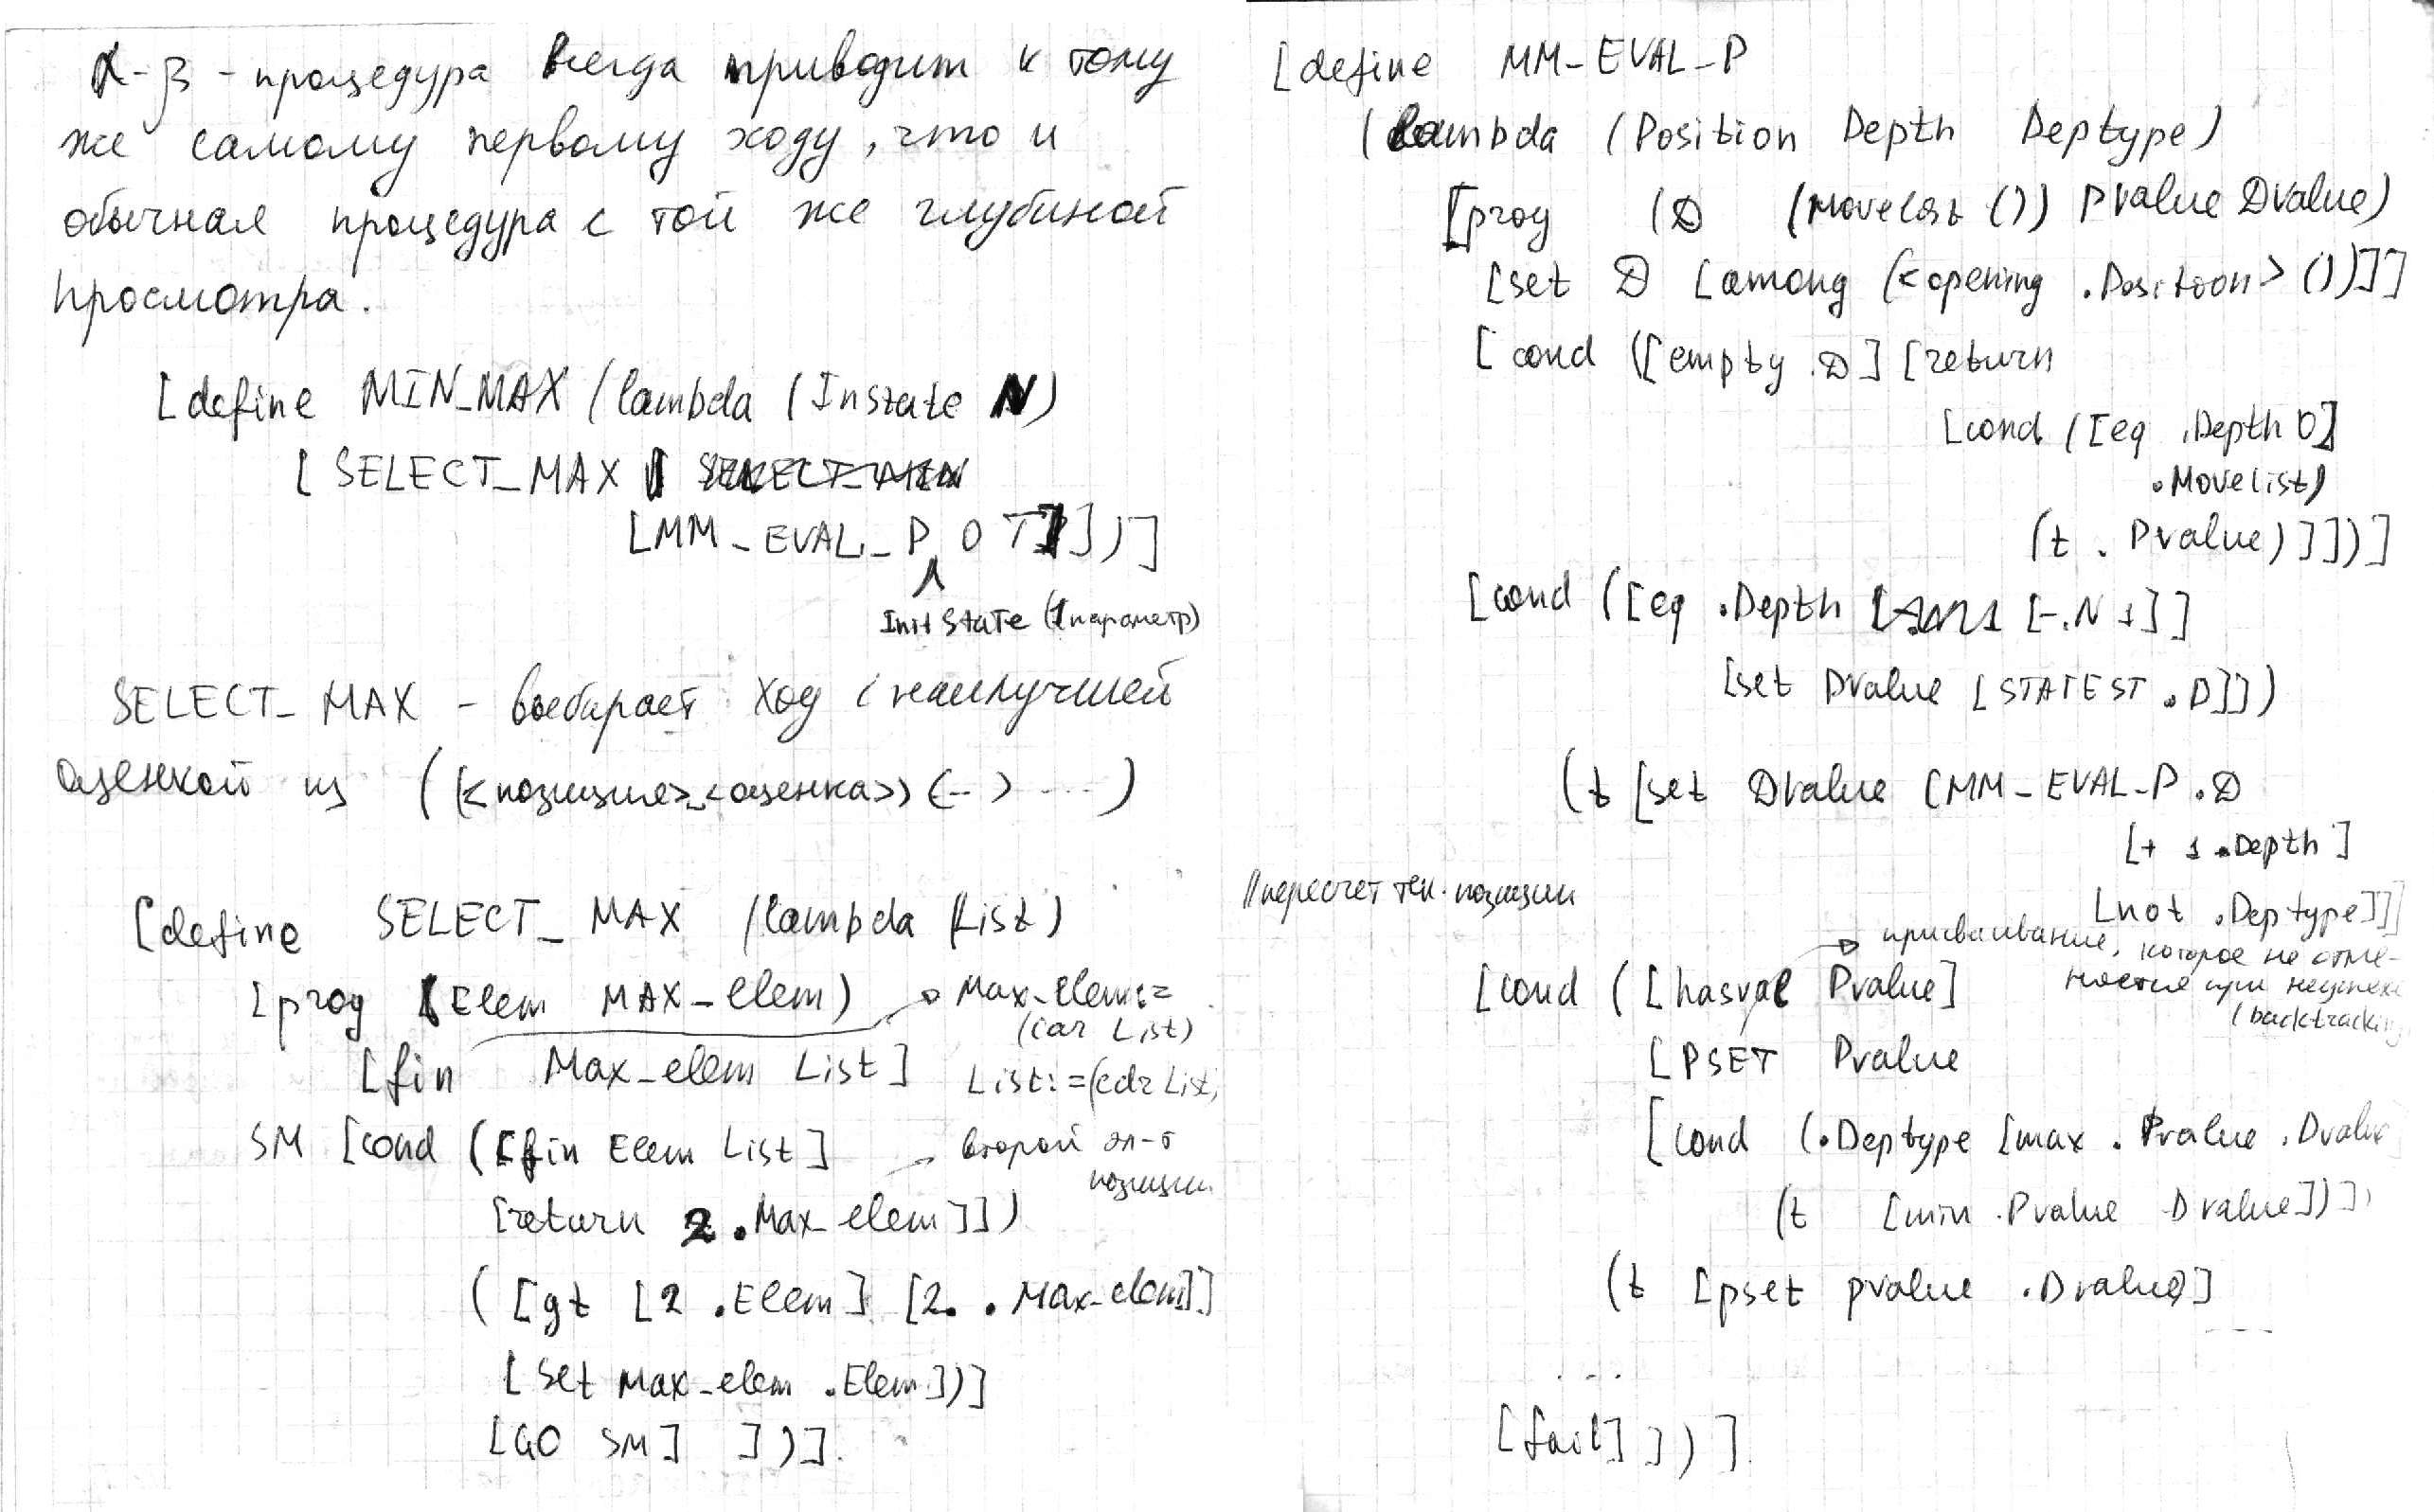 α-β-процедура всегда приводит к тому
же самому первому ходу, что и
обычная процедура с той же глубиной
просмотра.
[define MIN_MAX (lambda (Instate N)
[SELECT_MAX
[MM_EVAL_P 0 T]])]
InitState (1 параметр)
SELECT_MAX - выбирает ход с наилучшей
оценкой из ((<позиция> <оценка>) (-- ) ....)
[define SELECT_MAX (lambda (List)
[prog (Elem MAX_elem) → Max_elem:=
(car List)
[fin Max_elem List] List:=(cdr List)
SM [cond ([fin Elem List] → второй эл-т
позиции
[return 2 .Max_elem]])
([gt [2 .Elem] [2. .Max_elem]]
[set Max_elem .Elem])]
[GO SM] ])].
[define MM_EVAL_P
(lambda (Position Depth Deptype)
[prog (D (Movelist ()) Pvalue Dvalue)
[set D [among (<opening .Position> ())]]
[cond ([empty .D] [return
[cond ([eq .Depth 0]
.Movelist)
(t .Pvalue)]])]
[cond ([eq .Depth [-.N 1]]
[set Dvalue [STATEST .D]])
(t [set Dvalue [MM_EVAL_P .D
[+ 1 .Depth]
[not .Deptype]]]
// пересчет тек. позиции
→ присваивание, которое не отме-
няется при неуспехе
(backtracking
[cond ([hasval Pvalue]
[PSET Pvalue
[cond (.Deptype [max .Pvalue .Dvalue
(t [min .Pvalue Dvalue])])
(t [pset pvalue .Dvalue)]
....
[fail]])].